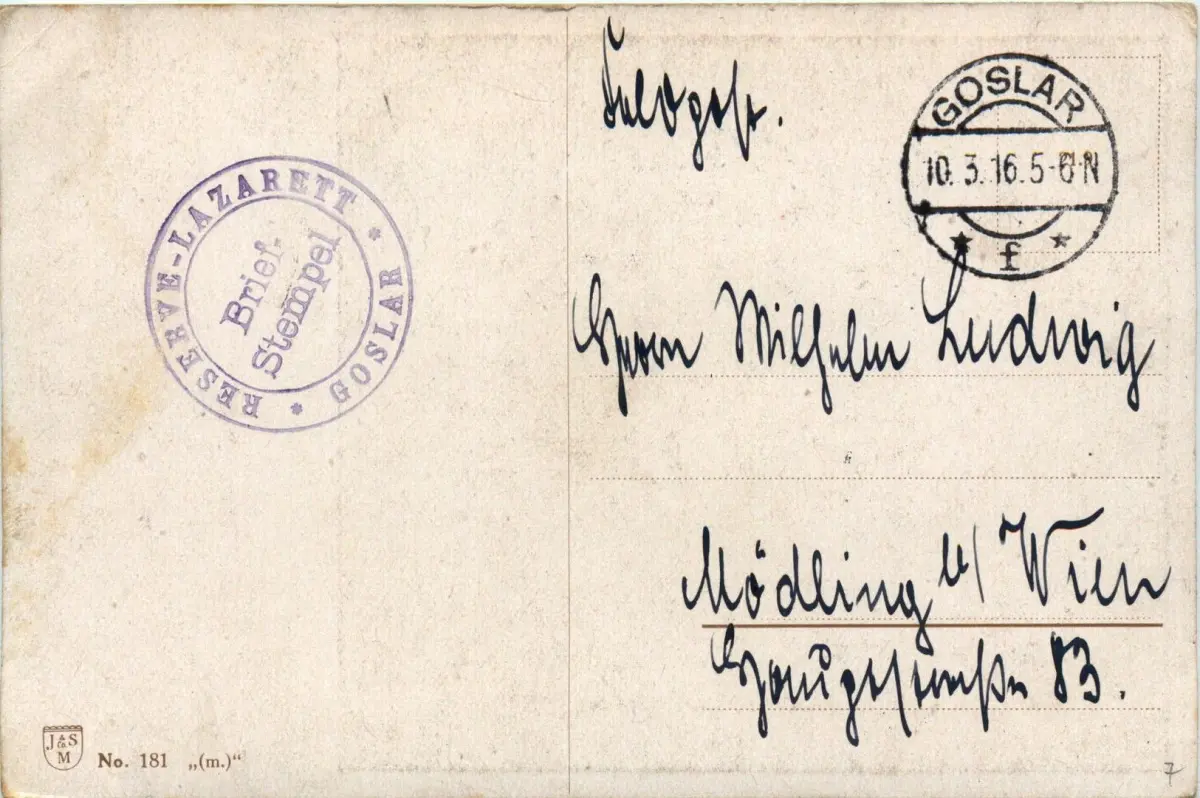 Feldpost.
GOSLAR
10. 3. 16. 5-6 N
* f *
RESERVE-LAZARETT * GOSLAR *
Brief-
Stempel
Herrn Wilhelm Ludwig
Mödling b/ Wien
Hauptstraße 83.
J & Co S
M
No. 181 „(m.)“
7